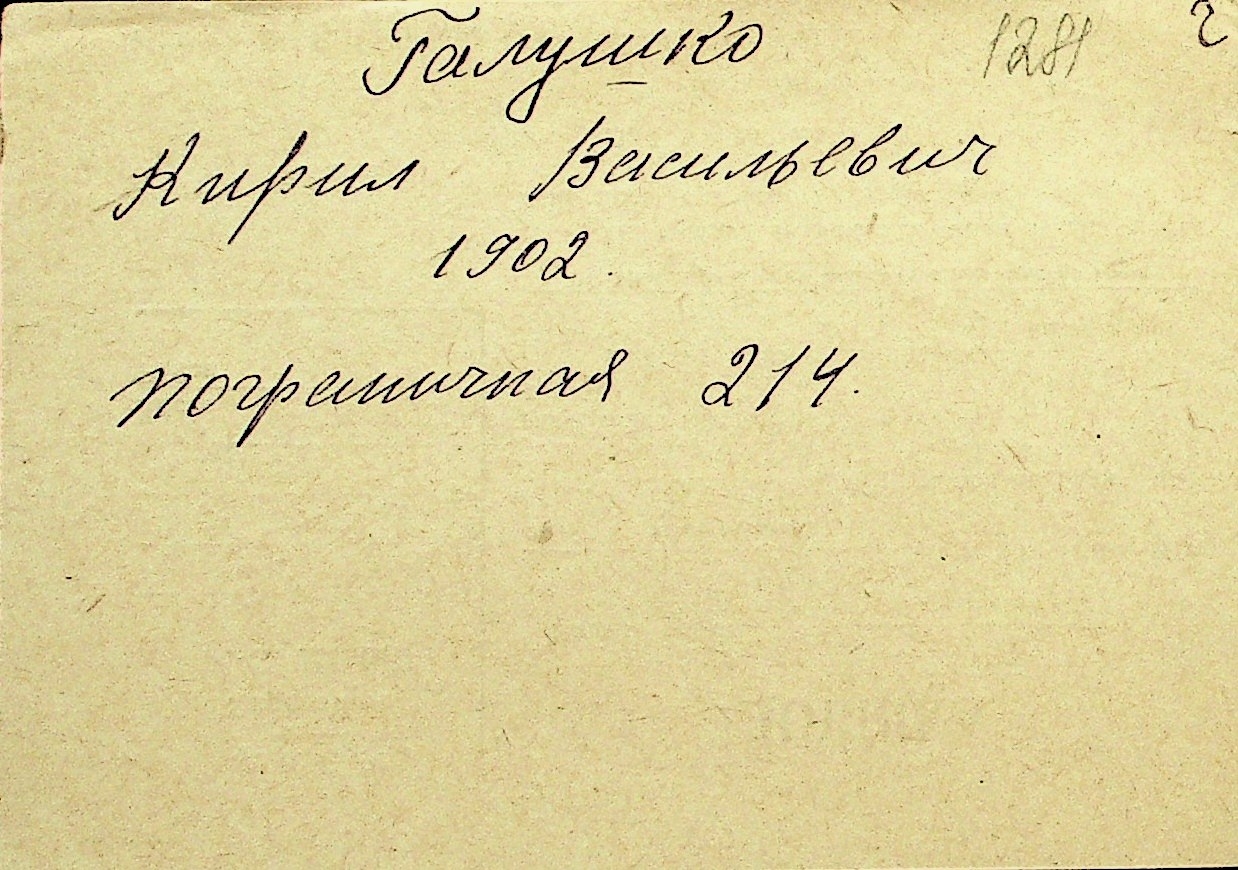 Галушко 1281
Кирил Васильевич
1902.
пограничная 214.